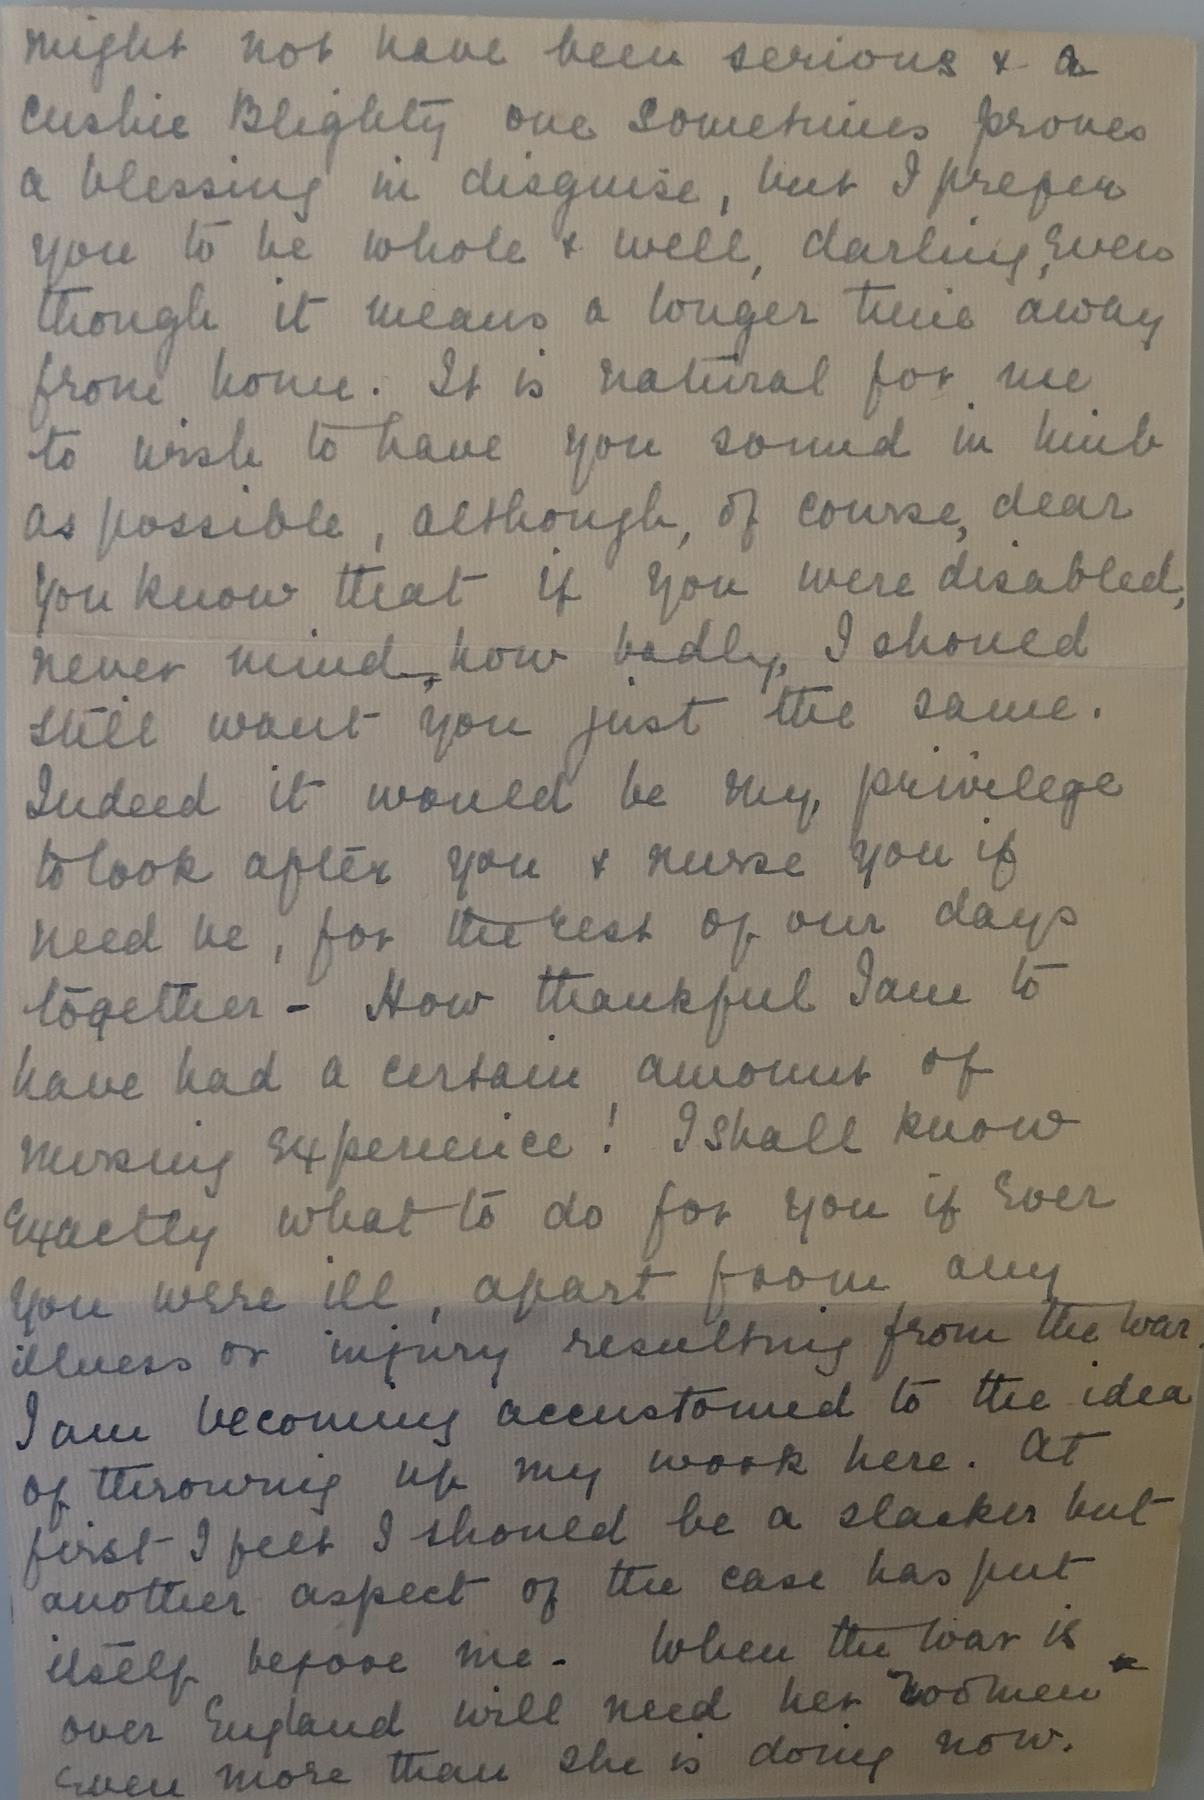 might not have been serious & a
cushie Blighty one sometimes proves
a blessing in disguise, but I prefer
you to be whole & well, darling, even
though it means a longer time away
from home. It is natural for me
to wish to have you sound in limb
as possible, although, of course, dear
you know that if you were disabled,
never mind, how badly, I should
still want you just the same.
Indeed it would be my, privilege
to look after you & nurse you if
need be, for the rest of our days
together - How thankful I am to
have had a certain amount of
nursing experience! I shall know
exactly what to do for you if ever
you were ill, apart from any
illness or injury resulting from the war.
I am becoming accustomed to the idea
of throwing up my work here. At
first I felt I should be a slacker but
another aspect of the case has put
itself before me - When the war is
over England will need her "women"
even more than she is doing now.